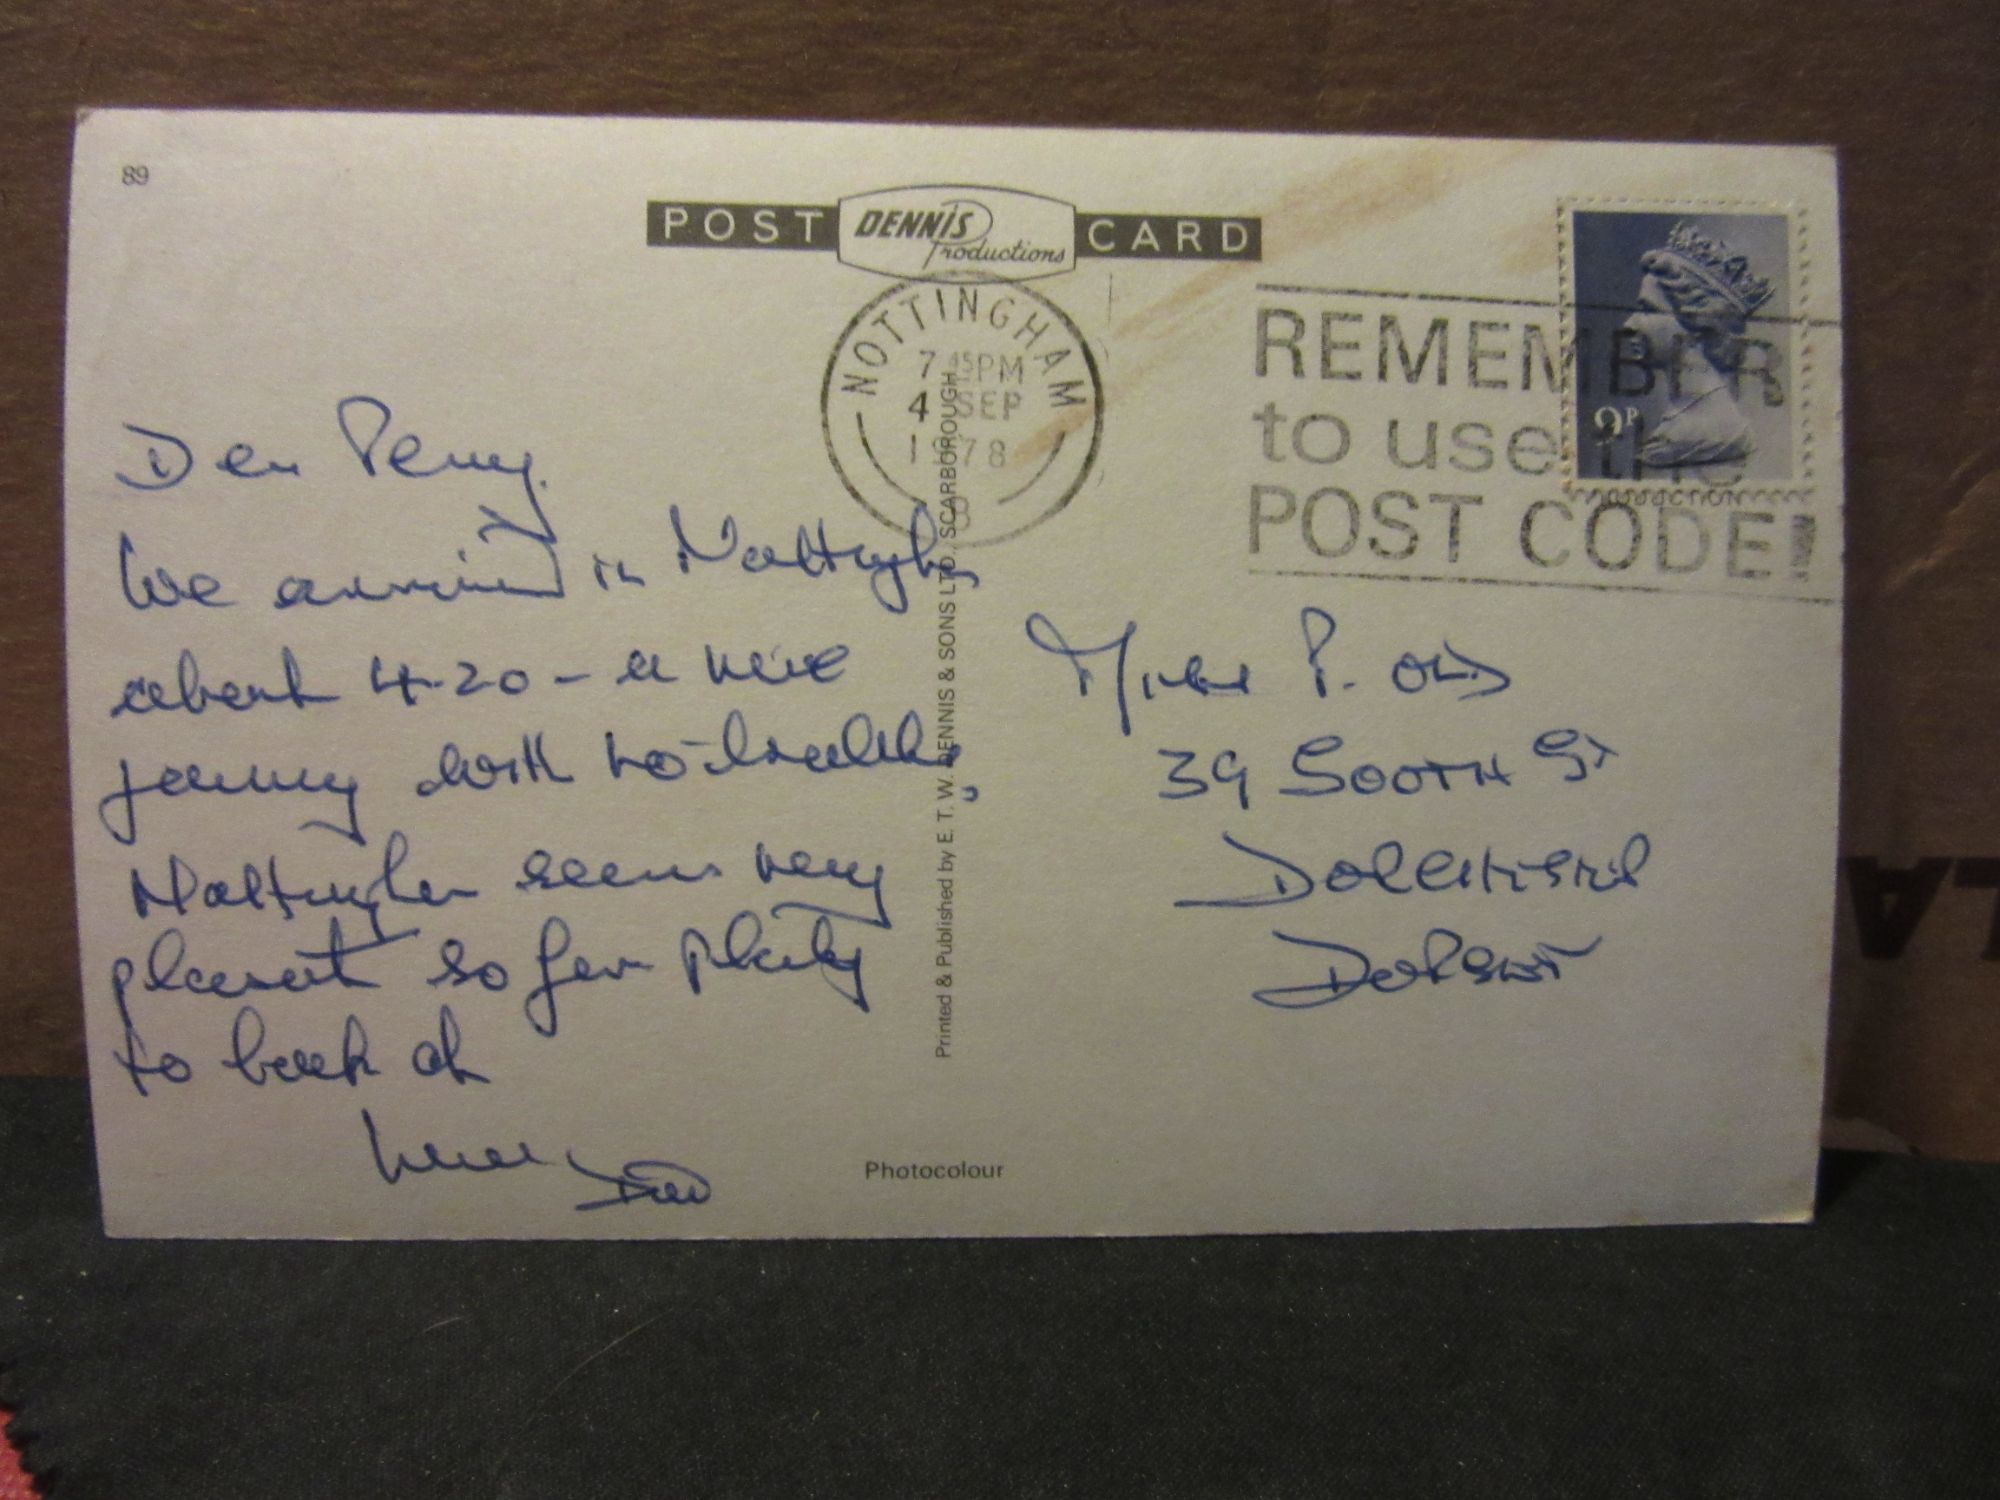 89
POST DENNIS Productions CARD
NOTTINGHAM
7 45PM
4 SEP
1978
REMEMBER
to use the
POST CODE
9P
Dear Penny.
We arrived in Nottingham
about 4-20 - a nice
journey with no trouble,
Nottingham seems very
pleasant so far plenty
to look at
Love Dad
Printed & Published by E. T. W. DENNIS & SONS LTD., SCARBOROUGH
P.
39 SOUTH ST
DORCHESTER
DORSET
Photocolour